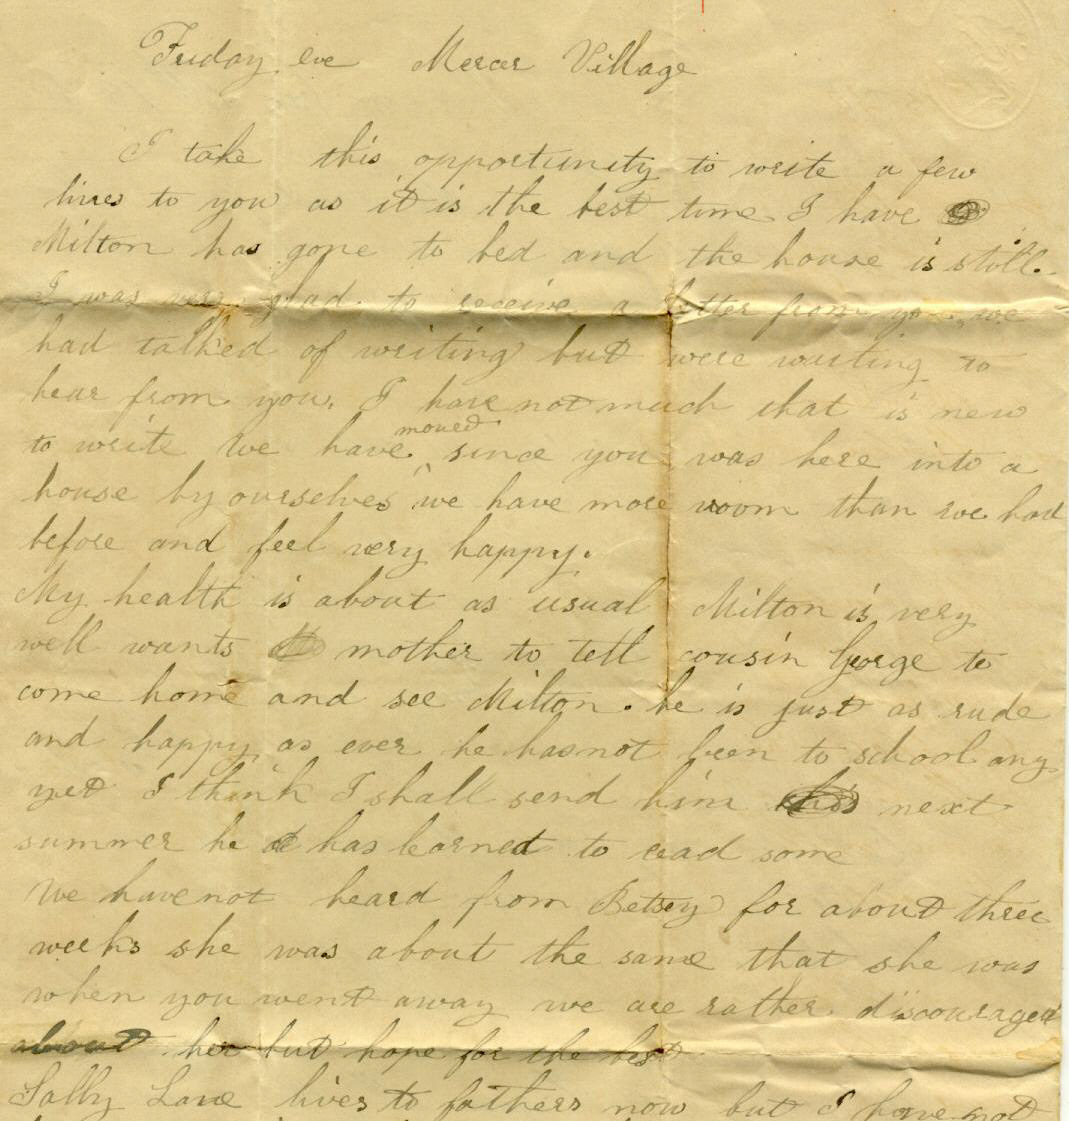 Friday eve Mercer Village
I take this opportunity to write a few
lines to you as it is the best time I have
Milton has gone to bed and the house is still.
I was very glad to receive a letter from you, we
had talked of writing but were waiting to
hear from you. I have not much that is new
to write We have moved since you was here into a
house by ourselves we have more room than we had
before and feel very happy.
My health is about as usual Milton is very
well wants mother to tell cousin George to
come home and see Milton. he is just as rude
and happy as ever he has not been to school any
yet I think I shall send him next
summer he has learned to read some
We have not heard from Betsey for about three
weeks she was about the same that she was
when you went away we are rather discouraged
about her but hope for the best
Sally Lane lives to fathers now but I have not